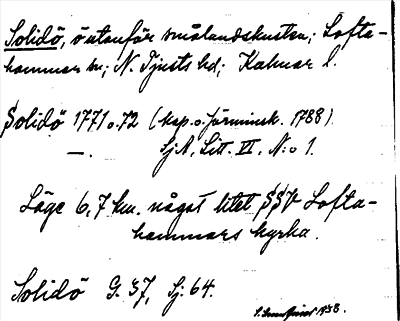 Solidö, ö utanför smålandskusten; Lofta-
hammar sn; N. Tjusts hd; Kalmar l.
Solidö 1771 o. 72 (kop. o. förminsk. 1788).
—. SjA, Litt. VI, N:o 1.
Läge 6,7 km. något litet SSV Lofta-
hammars kyrka.
Solidö G. 37, Sj: 64.
1938.